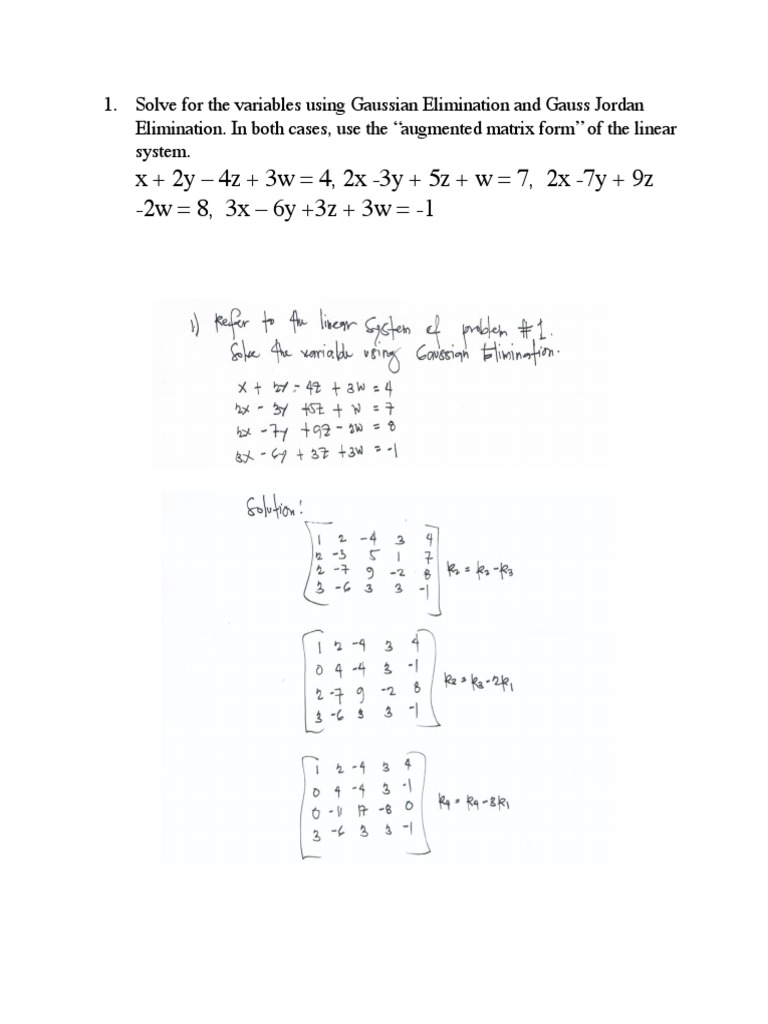 1. Solve for the variables using Gaussian Elimination and Gauss Jordan
Elimination. In both cases, use the “augmented matrix form” of the linear
system.
x + 2y – 4z + 3w = 4, 2x -3y + 5z + w = 7, 2x -7y + 9z
-2w = 8, 3x – 6y +3z + 3w = -1
1) Refer to the linear system of problem #1.
Solve the variable using Gaussian Elimination.
x + 2y - 4z + 3w = 4
2x - 3y + 5z + w = 7
2x - 7y + 9z - 2w = 8
3x - 6y + 3z + 3w = -1
Solution:
1 2 -4 3 4
2 -3 5 1 7
2 -7 9 -2 8 R2 = R2 - R3
3 -6 3 3 -1
1 2 -4 3 4
0 4 -4 3 -1
2 -7 9 -2 8 R2 = R3 - 2R1
3 -6 3 3 -1
1 2 -4 3 4
0 4 -4 3 -1
0 -11 17 -8 0 R4 = R4 - 3R1
3 -6 3 3 -1